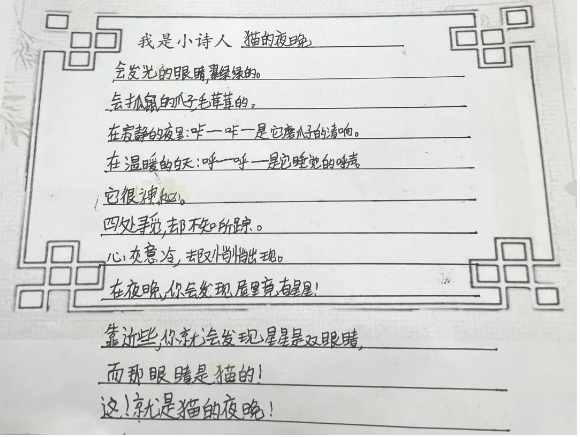 我是小诗人 猫的夜晚
会发光的眼睛,翠绿绿的。
会抓鼠的爪子,毛茸茸的。
在寂静的夜里:咔一咔一是它磨爪子的清响。
在温暖的白天:呼一呼一是它睡觉的呼声
它很神秘。
四处寻觅,却不知所踪。
心灰意冷,却又悄悄出现。
在夜晚,你会发现屋里竟有星星!
靠近些,你就会发现星星是双眼睛,
而那眼睛是猫的!
这!就是猫的夜晚!